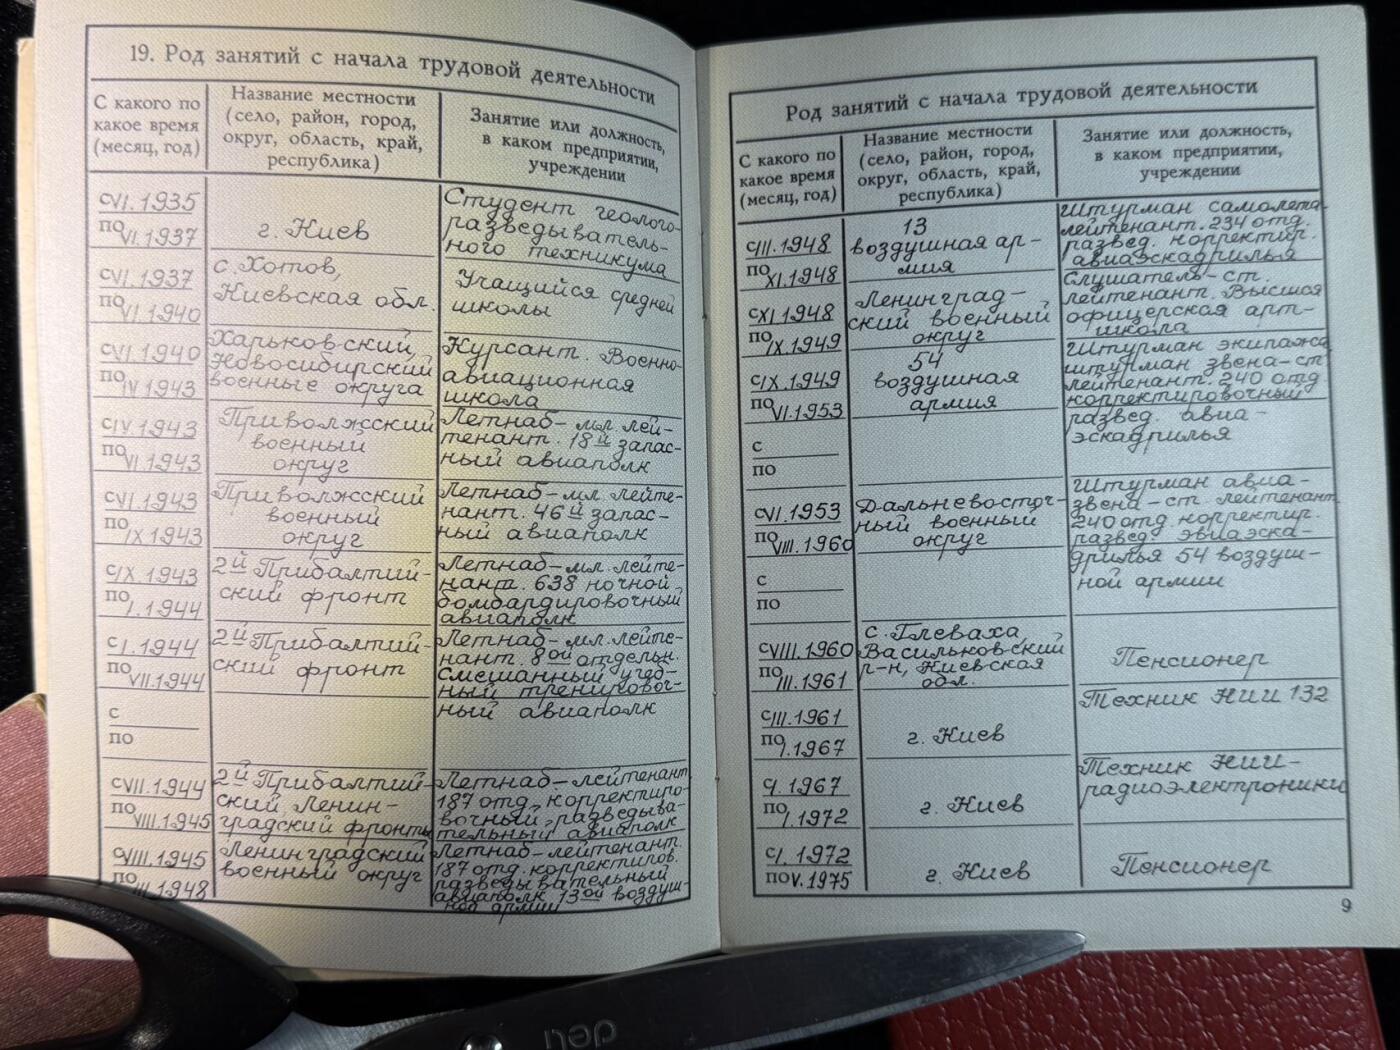 19. Род занятий с начала трудовой деятельности
С какого по
какое время
(месяц, год)
Название местности
(село, район, город,
округ, область, край,
республика)
Занятие или должность,
в каком предприятии,
учреждении
с VI.1935
по VI.1937
г. Киев
Студент геолого-
разведыватель-
ного техникума
с VI.1937
по VI.1940
с. Хотов,
Киевская обл.
Учащийся средней
школы
с VI.1940
по IV 1943
Харьковский,
Новосибирский
военные округа
Курсант. Военно-
авиационная
школа
с IV.1943
по VI.1943
Приволжский
военный
округ
Летнаб – мл. лей-
тенант. 18й запас-
ный авиаполк
с VI.1943
по IX 1943
Приволжский
военный
округ
Летнаб – мл. лейте-
нант. 46й запас-
ный авиаполк
с IX.1943
по I.1944
2й Прибалтий-
ский фронт
Летнаб – мл. лейте-
нант. 638 ночной
бомбардировочный
авиаполк
с I.1944
по VII.1944
2й Прибалтий-
ский фронт
Летнаб – мл. лейте-
нант. 8ой отдельн.
смешанный учеб-
ный тренировоч-
ный авиаполк
с
по
с VII.1944
по VIII.1945
2й Прибалтий-
ский Ленин-
градский фронты
Летнаб – лейтенант
187 отд. корректиро-
вочный, разведыва-
тельный авиаполк
с VIII.1945
по III.1948
Ленинградский
военный округ
Летнаб – лейтенант.
187 отд. корректиров.
разведывательный
авиаполк 13ой воздуш-
ной армии
Род занятий с начала трудовой деятельности
С какого по
какое время
(месяц, год)
Название местности
(село, район, город,
округ, область, край,
республика)
Занятие или должность,
в каком предприятии,
учреждении
с III.1948
по XI.1948
13
воздушная ар-
мия
Штурман самолета
лейтенант. 234 отд.
развед. корректир.
авиаэскадрилья
с XI.1948
по IX.1949
Ленинград-
ский военный
округ
Слушатель – ст.
лейтенант. Высшая
офицерская арт-
школа
с IX.1949
по VI.1953
54
воздушная
армия
Штурман экипажа
штурман звена – ст
лейтенант. 240 отд
корректировочный
развед. авиа-
эскадрилья
с
по
с VI.1953
по VIII.1960
Дальневосточ-
ный военный
округ
Штурман авиа-
звена – ст. лейтенант
240 отд. корректир.
развед. эвиаэска-
дрилья 54 воздуш-
ной армии
с
по
с VIII.1960
по III.1961
с. Глеваха,
Васильковский
р-н, Киевская
обл.
Пенсионер
с III.1961
по I.1967
г. Киев
Техник НИИ 132
с I.1967
по I.1972
г. Киев
Техник НИИ-
радиоэлектроники
с I.1972
по V.1975
г. Киев
Пенсионер
9
deli